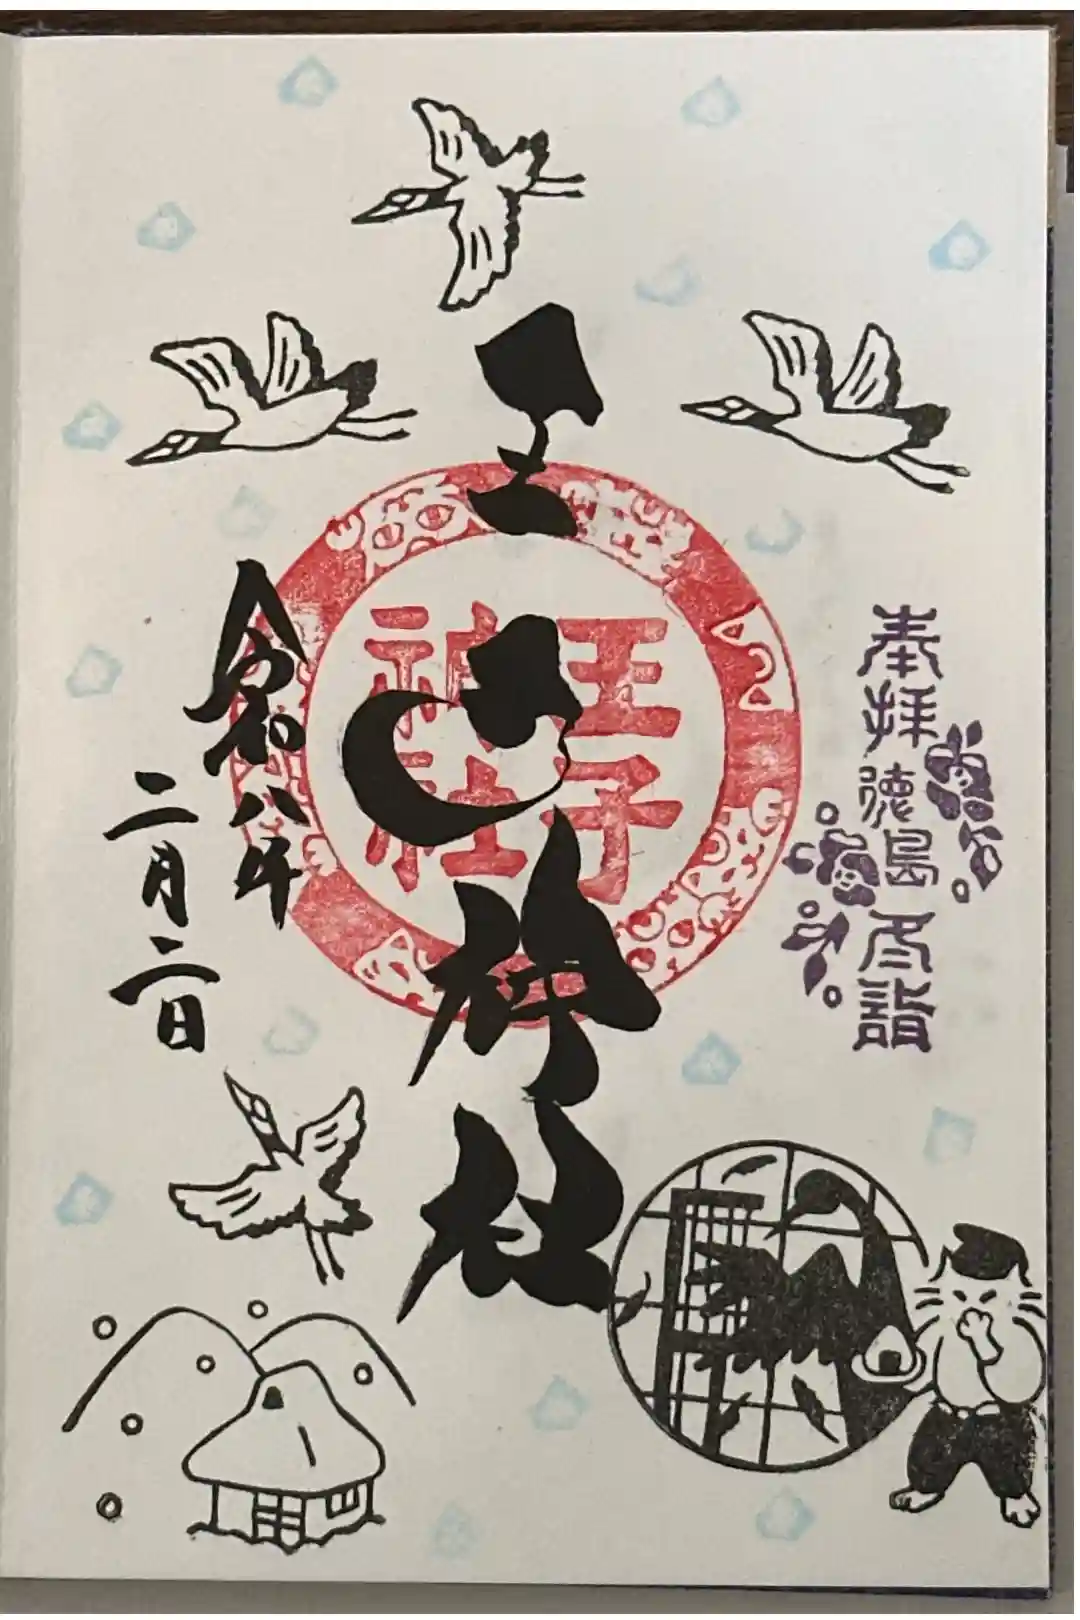 奉拝 徳島 参詣
王子神社
王子神社
令和八年
二月二日